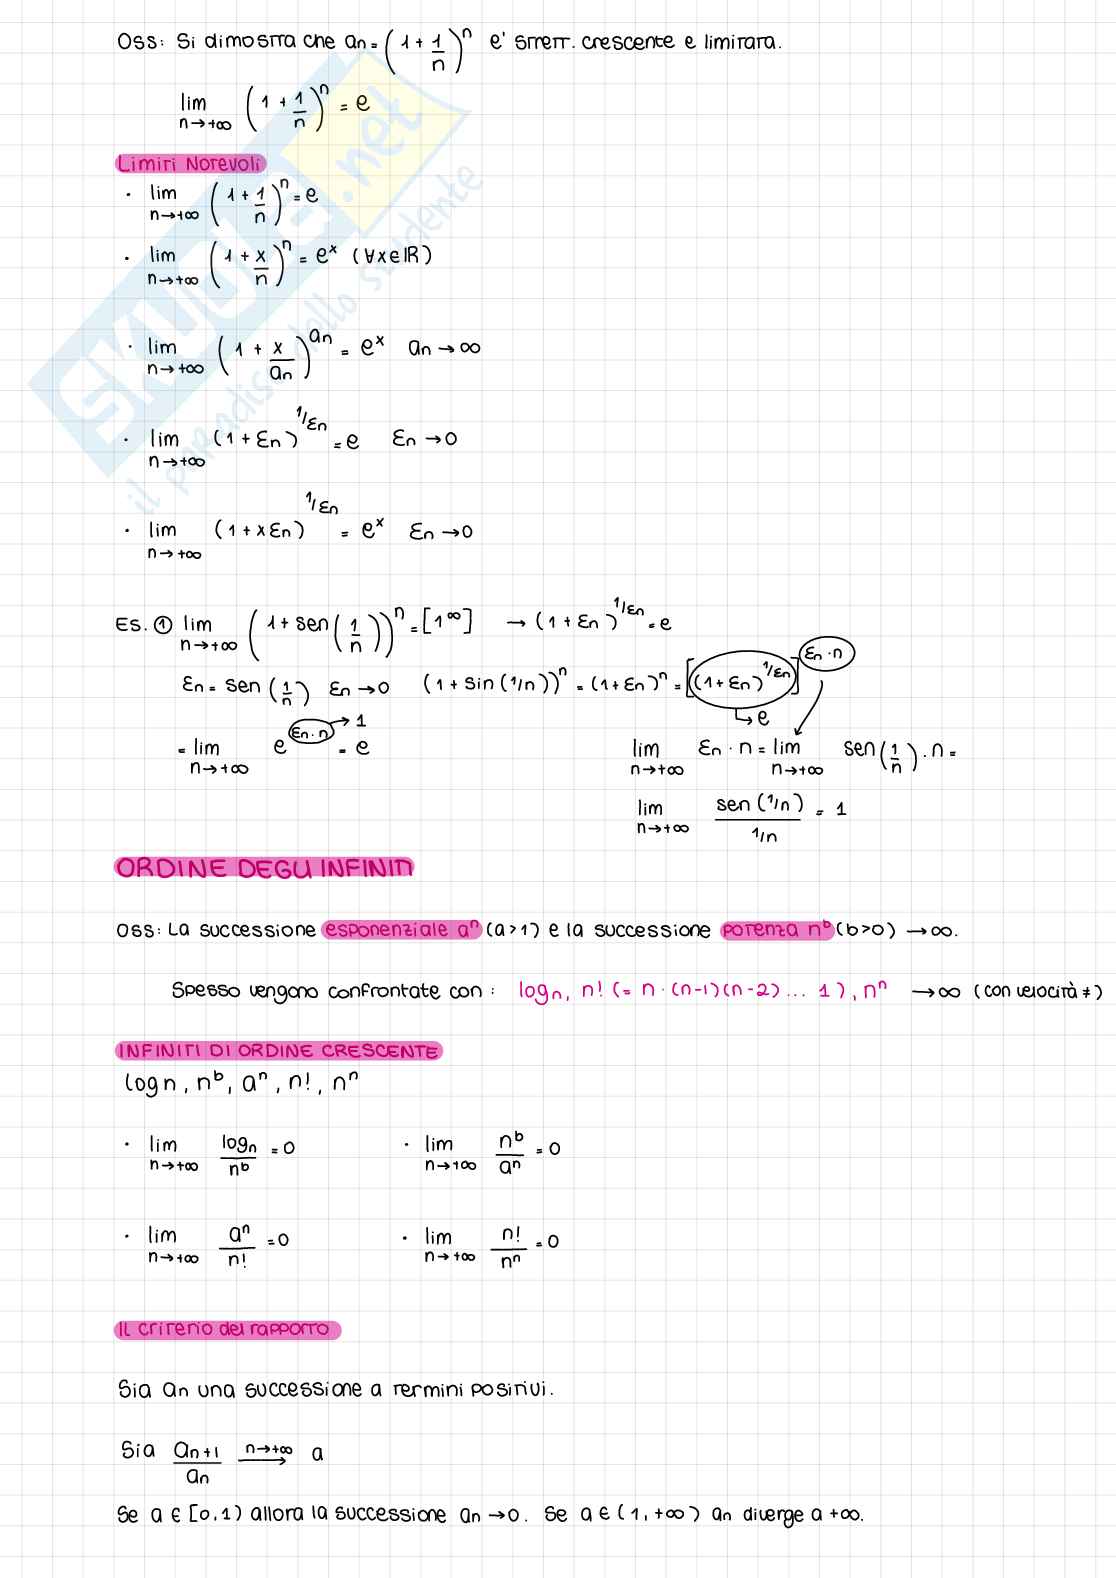 Oss: Si dimostra che an = (1 + 1/n)^n e' strett. crescente e limitata.
lim n→+∞ (1 + 1/n)^n = e
Limiti Notevoli
· lim n→+∞ (1 + 1/n)^n = e
· lim n→+∞ (1 + x/n)^n = e^x (∀x∈ℝ)
· lim n→+∞ (1 + x/an)^an = e^x an → ∞
· lim n→+∞ (1 + εn)^1/εn = e εn → 0
· lim n→+∞ (1 + xεn)^1/εn = e^x εn → 0
Es. ① lim n→+∞ (1 + sen(1/n))^n = [1^∞] → (1 + εn)^1/εn = e
εn = sen(1/n) εn → 0 (1 + sin(1/n))^n = (1 + εn)^n = [(1 + εn)^1/εn]^εn·n
→ e
= lim n→+∞ e^εn·n = e → 1
lim n→+∞ εn · n = lim n→+∞ sen(1/n) · n =
lim n→+∞ sen(1/n) / 1/n = 1
ORDINE DEGLI INFINITI
Oss: La successione esponenziale a^n (a>1) e la successione potenza n^b (b>0) → ∞.
Spesso vengono confrontate con: logn, n! (= n · (n-1)(n-2)... 1), n^n → ∞ (con velocità ≠)
INFINITI DI ORDINE CRESCENTE
log n, n^b, a^n, n!, n^n
· lim n→+∞ logn/n^b = 0 · lim n→+∞ n^b/a^n = 0
· lim n→+∞ a^n/n! = 0 · lim n→+∞ n!/n^n = 0
Il criterio del rapporto
Sia an una successione a termini positivi.
Sia an+1/an n→+∞ → a
Se a ∈ [0,1) allora la successione an → 0. Se a ∈ (1, +∞) an diverge a +∞.
SKUOLA.net
il paradiso dello studente